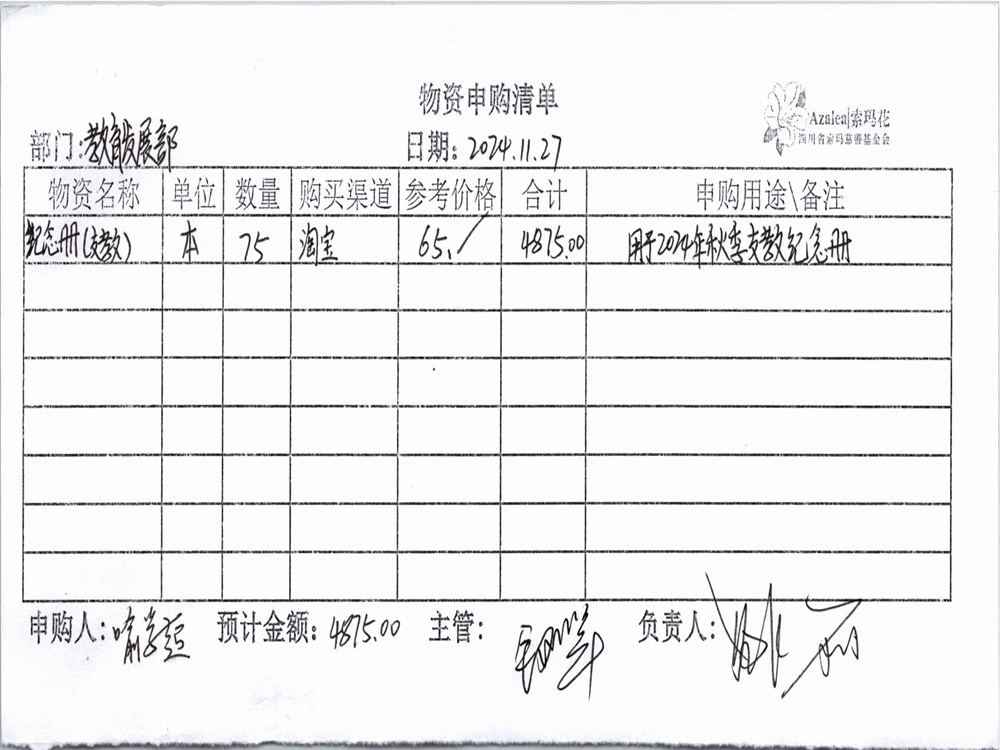 物资申购清单
Azalea|索玛花
四川省索玛慈善基金会
部门:教育发展部 日期:2024.11.27
物资名称 单位 数量 购买渠道 参考价格 合计 申购用途\备注
纪念册(支教) 本 75 淘宝 65./ 4875.00 用于2024年秋季支教纪念册
申购人: 预计金额:4875.00 主管: 负责人: